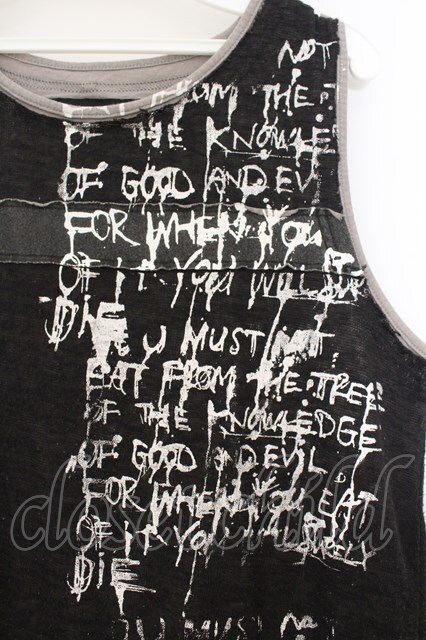 NOT
EAT FROM THE T
OF THE KNOWLE
OF GOOD AND EV
FOR WHEN YOU
OF IT YOU WILL
DIE
U MUST NOT
EAT FROM THE TREE
OF THE KNOWLEDGE
OF GOOD & EVIL
FOR WHEN YOU EAT
OF IT YOU
DIE
OU MUST NO
closet child